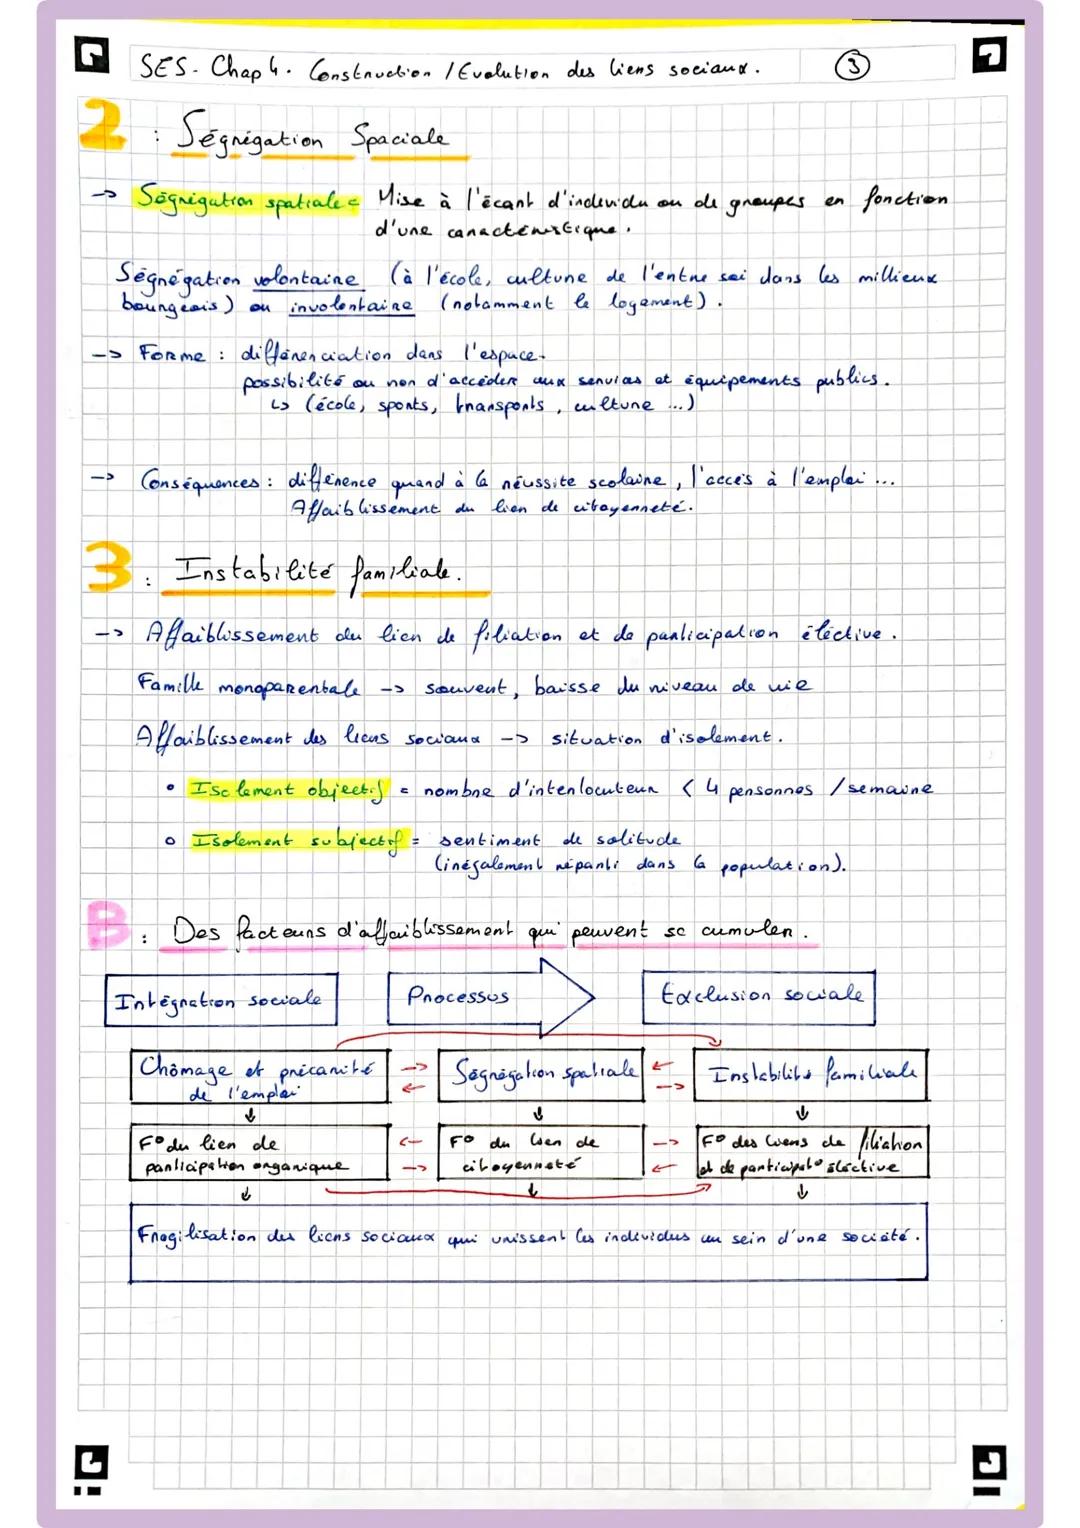 SES. Chap 4. Construction / Evolution des liens sociaux. 3
2 : Ségrégation Spaciale
-> Ségrégation spatiale = Mise à l'écart d'individu ou de groupes en fonction
d'une caractéristique.
Ségrégation volontaire (à l'école, culture de l'entre soi dans les millieux
bourgeois) ou involontaire (notamment le logement).
-> Forme : différenciation dans l'espace.
possibilité ou non d'accéder aux services et équipements publics.
↳ (école, sports, transports, culture ...)
-> Conséquences : différence quand à la réussite scolaire, l'accès à l'emploi ...
Affaiblissement du lien de citoyenneté.
3 : Instabilité familiale.
-> Affaiblissement du lien de filiation et de participation élective.
Famille monoparentale -> souvent, baisse du niveau de vie
Affaiblissement des liens sociaux -> situation d'isolement.
• Isolement objectif = nombre d'interlocuteur < 4 personnes / semaine
• Isolement subjectif = sentiment de solitude
(inégalement réparti dans la population).
B : Des facteurs d'affaiblissement qui peuvent se cumuler.
Intégration sociale Processus Exclusion sociale
Chômage et précarité de l'emploi
Ségrégation spatiale
Instabilité familiale
F° du lien de participation organique
F° du lien de citoyenneté
F° des liens de filiation et de participat° élective
Fragilisation des liens sociaux qui unissent les individus au sein d'une société.